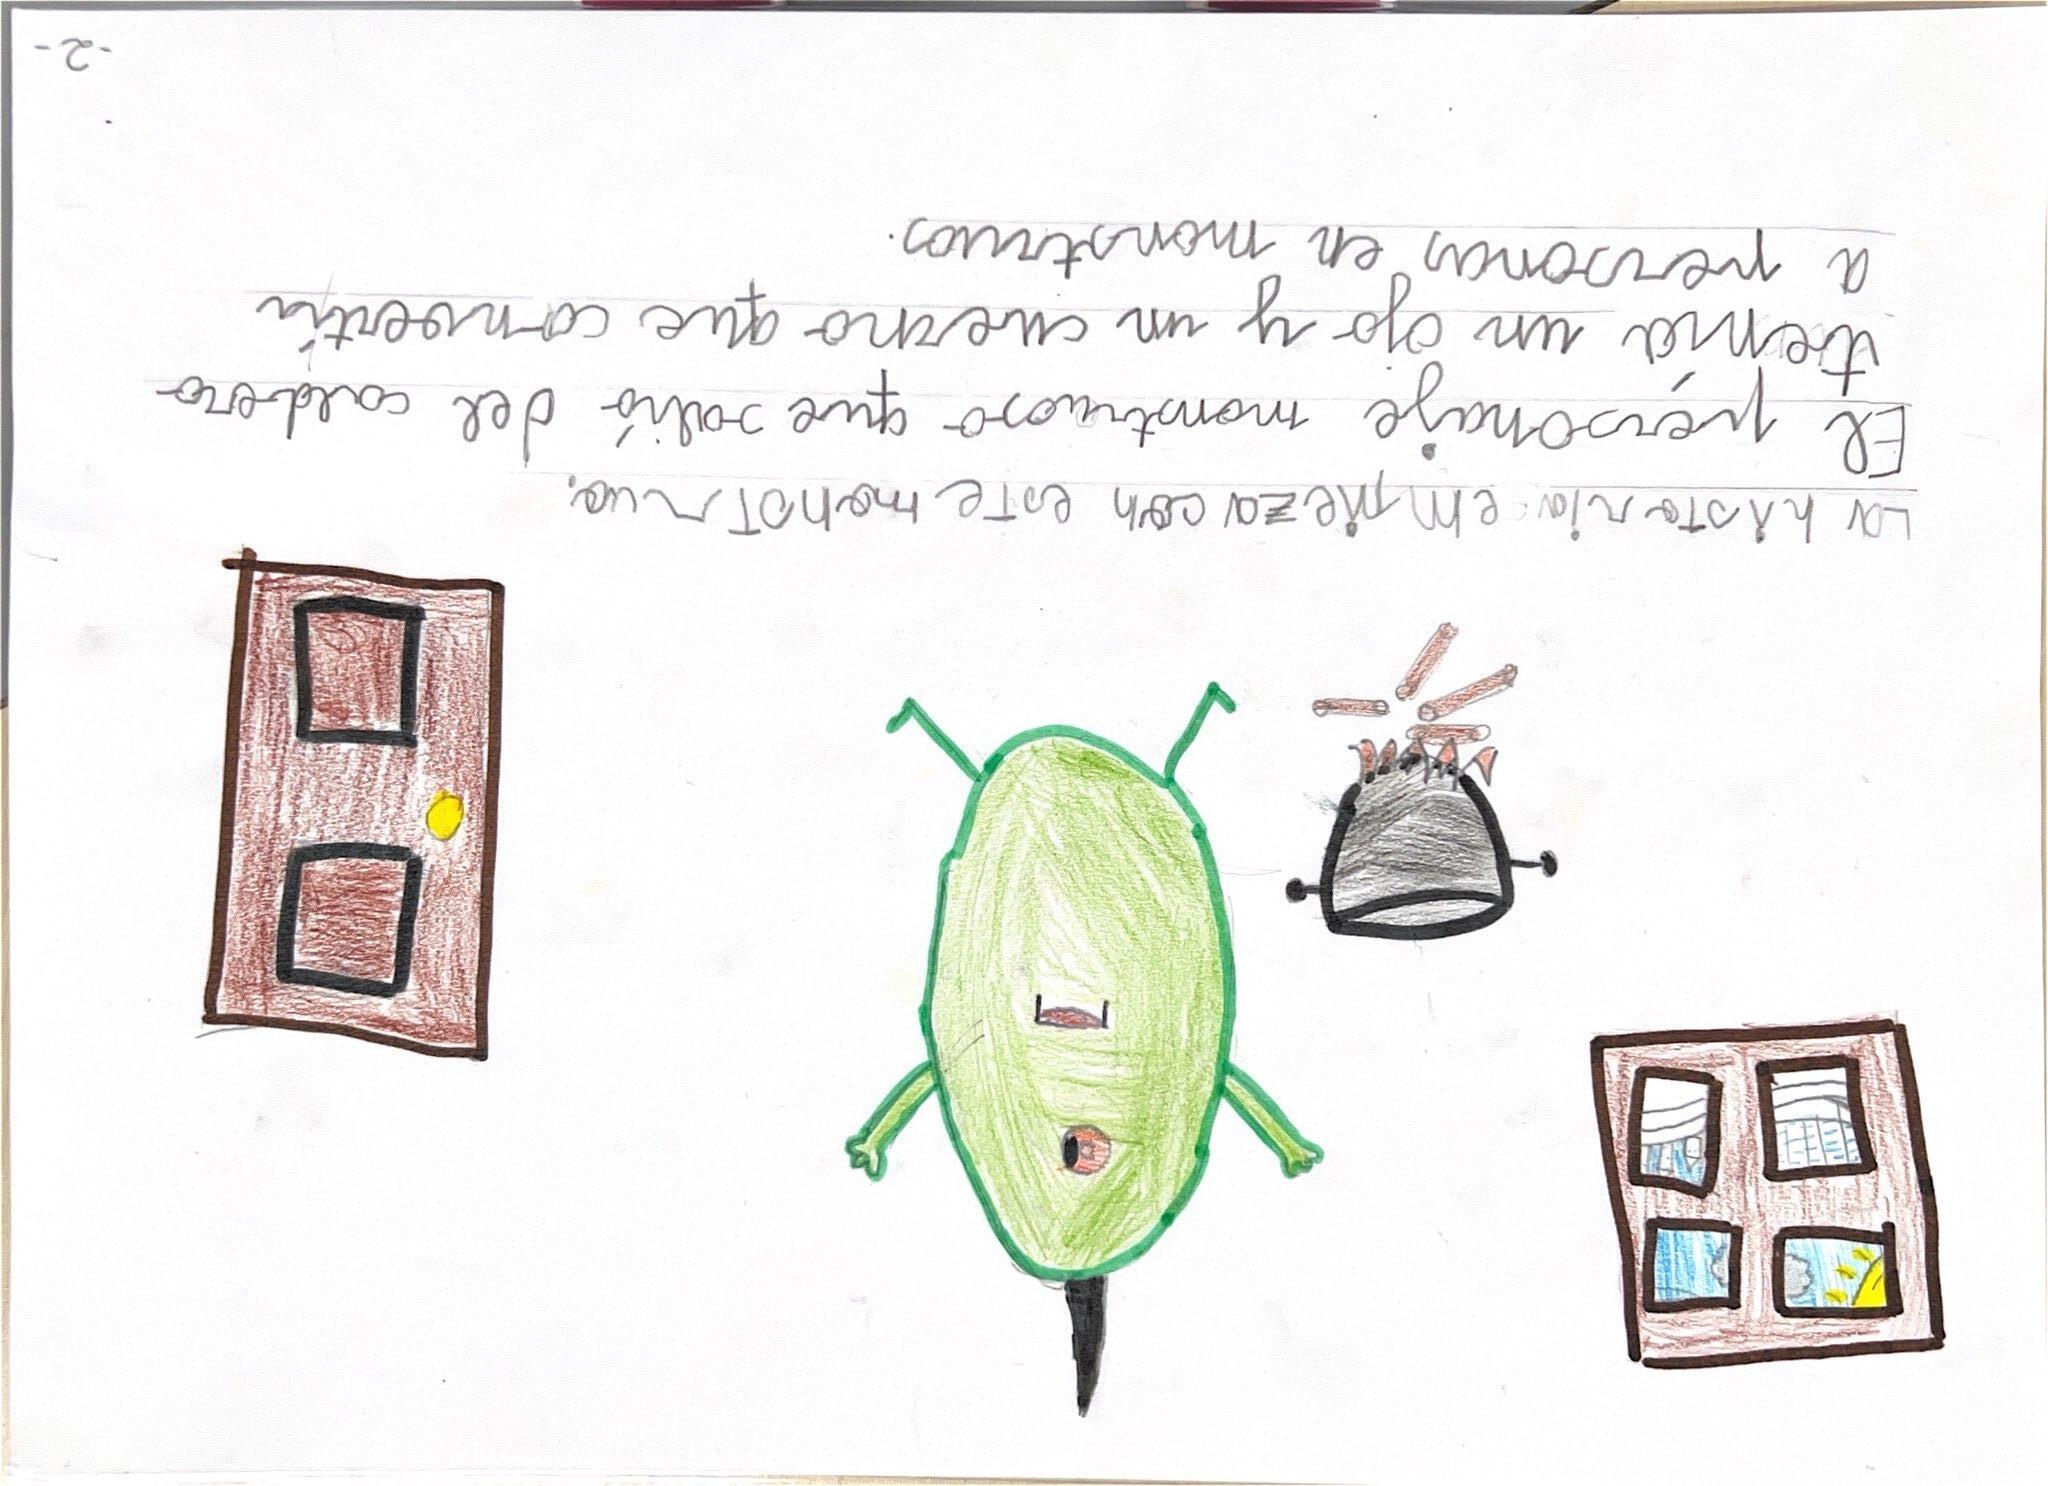 La historia empieza con este monstruo.
El personaje monstruoso que salió del caldero
tenia un ojo y un cuerno que convertía
a personas en monstruos.
-2-